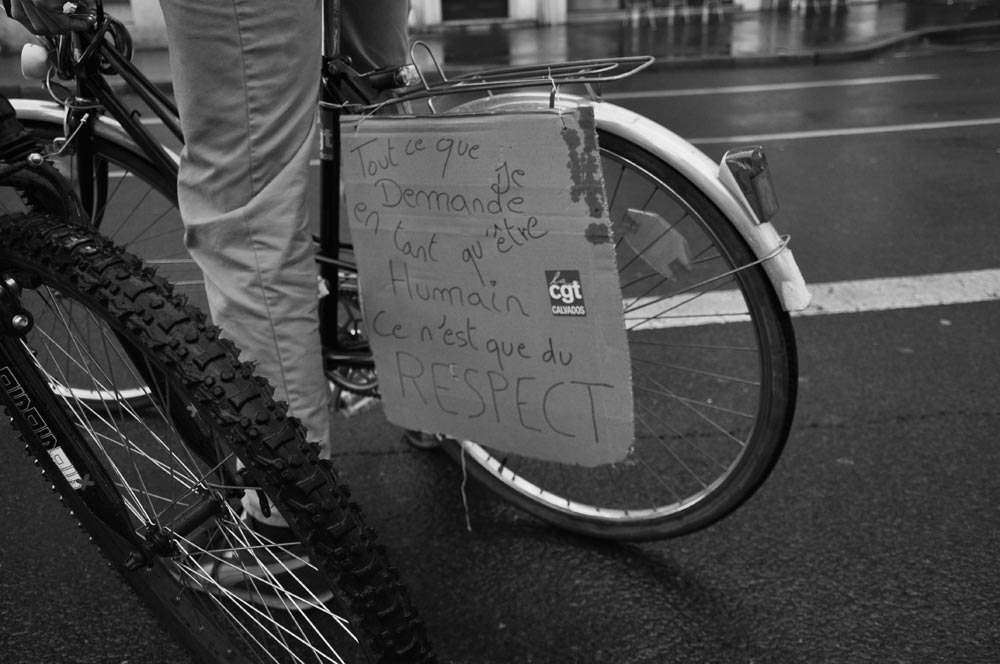 Tout ce que
je
Demande
en tant qu'être
Humain
Ce n'est que du
RESPECT
la
cgt
CALVADOS